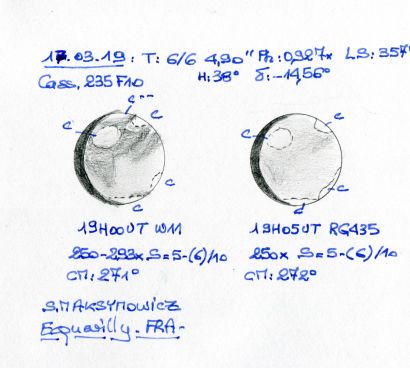 17.03.19 : T: 6/6 4,90" Ph: 0,927x LS: 357°
Cass, 235 F10 H: 38° δ: -14,56°
c c--
c c
c c
c c
d
19H00UT W11 19H05UT RG435
250-293x S=5-(6)/10 250x S=5-(6)/10
CM: 271° CM: 272°
S.MAKSYMOWICZ
Ecquevilly. FRA-